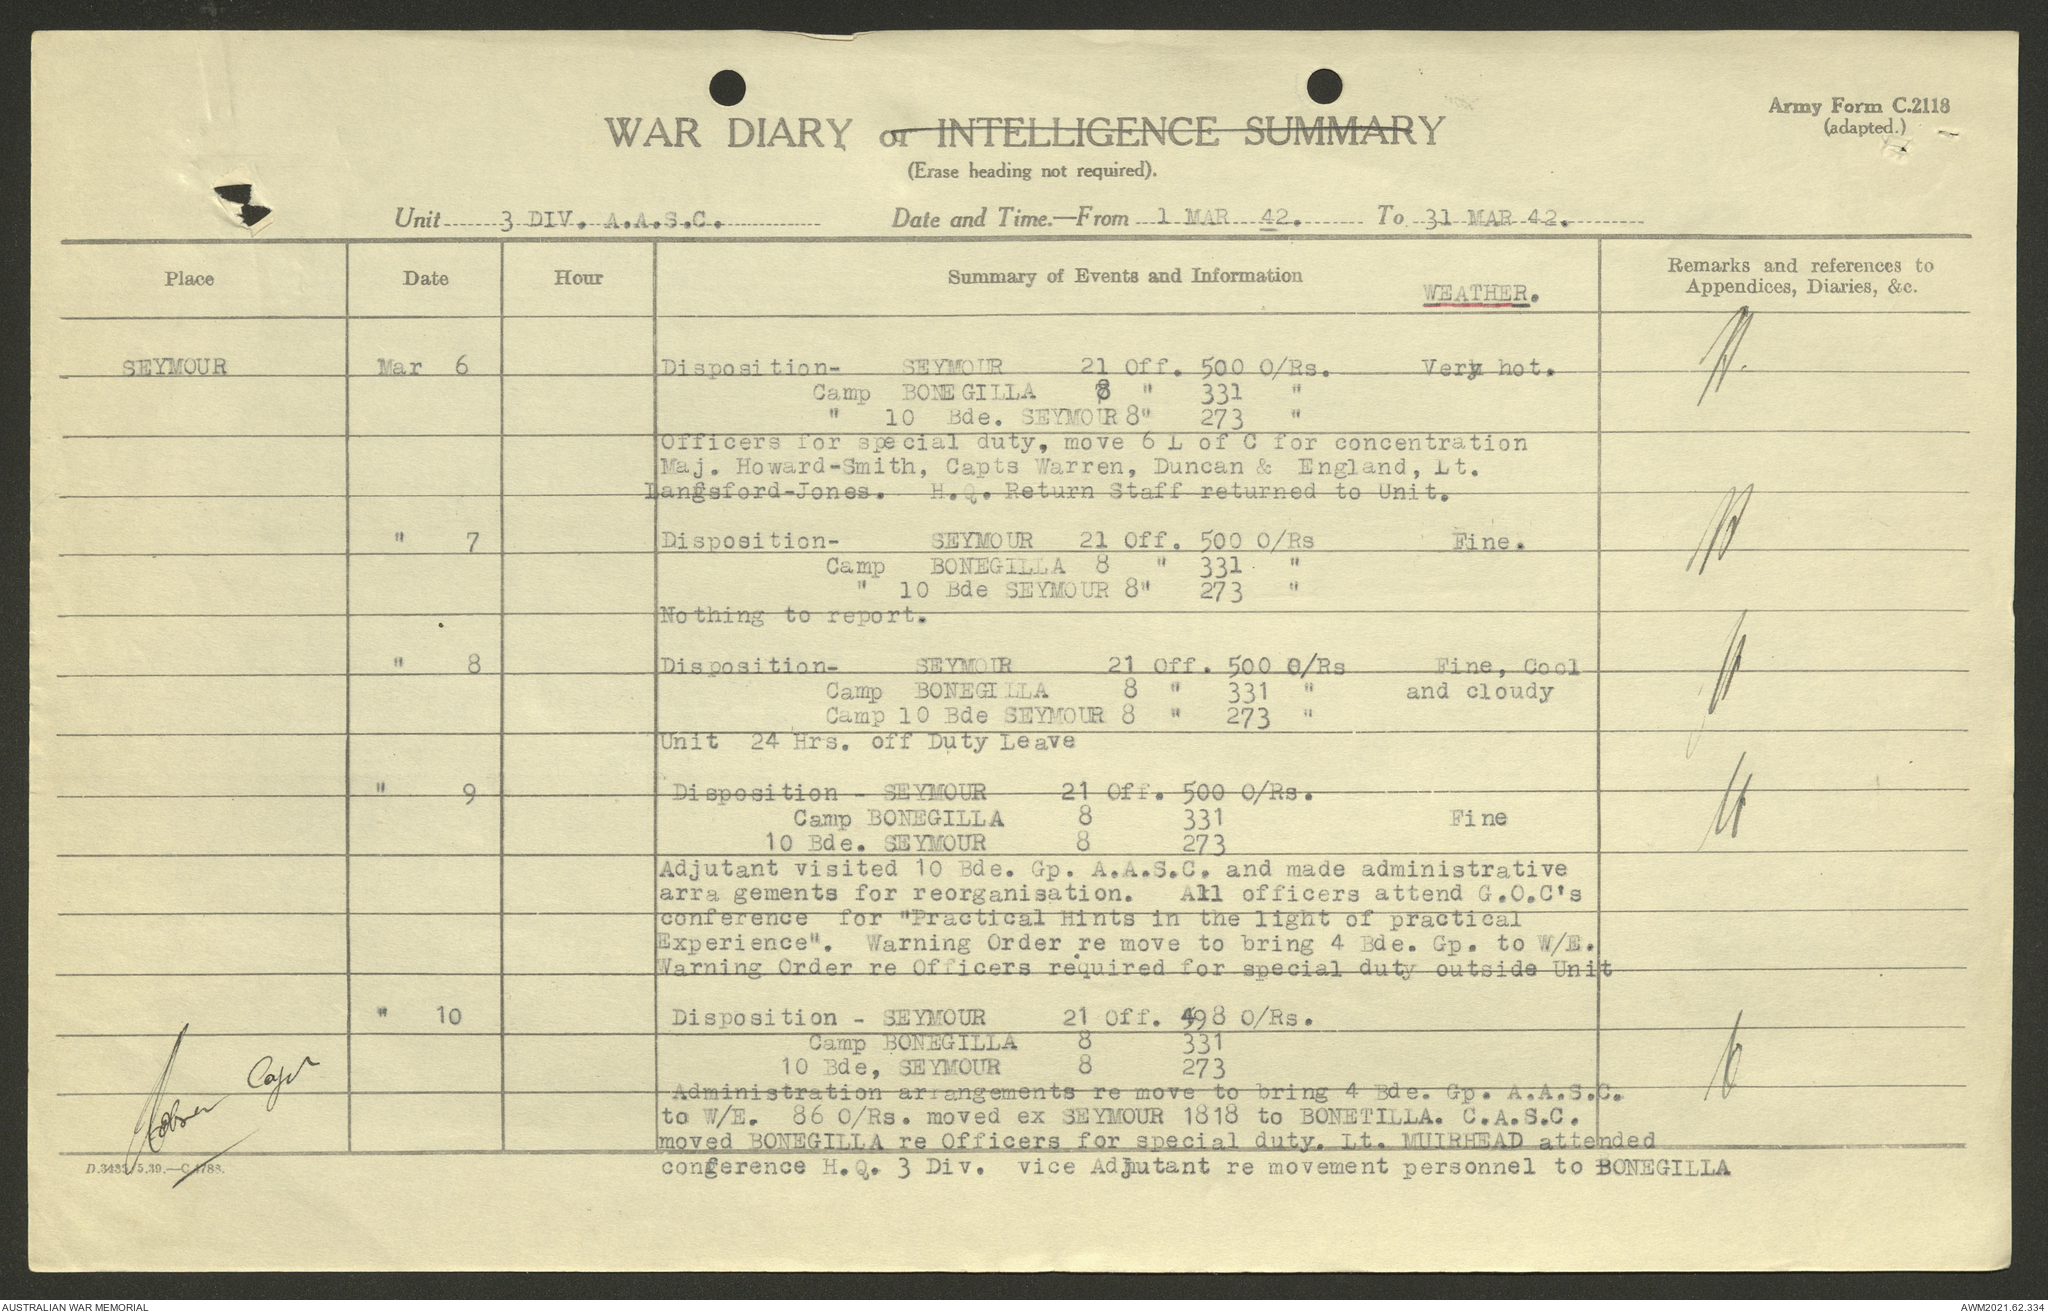 Army Form C.2118
(adapted.)
WAR DIARY or INTELLIGENCE SUMMARY
(Erase heading not required).
Unit 3 DIV. A.A.S.C. Date and Time.—From 1 MAR 42. To 31 MAR 42.
Place Date Hour Summary of Events and Information Remarks and references to
Appendices, Diaries, &c.
WEATHER.
SEYMOUR Mar 6 Disposition- SEYMOUR 21 Off. 500 O/Rs. Very hot.
Camp BONEGILLA 8 " 331 "
" 10 Bde. SEYMOUR 8" 273 "
Officers for special duty, move 6 L of C for concentration
Maj. Howard-Smith, Capts Warren, Duncan & England, Lt.
Langsford-Jones. H.Q. Return Staff returned to Unit.
" 7 Disposition- SEYMOUR 21 Off. 500 O/Rs Fine.
Camp BONEGILLA 8 " 331 "
" 10 Bde SEYMOUR 8" 273 "
Nothing to report.
" 8 Disposition- SEYMOUR 21 Off. 500 O/Rs Fine, Cool
Camp BONEGILLA 8 " 331 " and cloudy
Camp 10 Bde SEYMOUR 8 " 273 "
Unit 24 Hrs. off Duty Leave
" 9 Disposition - SEYMOUR 21 Off. 500 O/Rs.
Camp BONEGILLA 8 331 Fine
10 Bde. SEYMOUR 8 273
Adjutant visited 10 Bde. Gp. A.A.S.C. and made administrative
arra gements for reorganisation. All officers attend G.O.C's
conference for "Practical Hints in the light of practical
Experience". Warning Order re move to bring 4 Bde. Gp. to W/E.
Warning Order re Officers required for special duty outside Unit
" 10 Disposition - SEYMOUR 21 Off. 498 O/Rs.
Camp BONEGILLA 8 331
10 Bde, SEYMOUR 8 273
Administration arrangements re move to bring 4 Bde. Gp. A.A.S.C.
to W/E. 86 O/Rs. moved ex SEYMOUR 1818 to BONETILLA. C.A.S.C.
moved BONEGILLA re Officers for special duty. Lt. MUIRHEAD attended
conference H.Q. 3 Div. vice Adjutant re movement personnel to BONEGILLA
Capt
D.3483/5.39.—C.4788.
AUSTRALIAN WAR MEMORIAL AWM2021.62.334